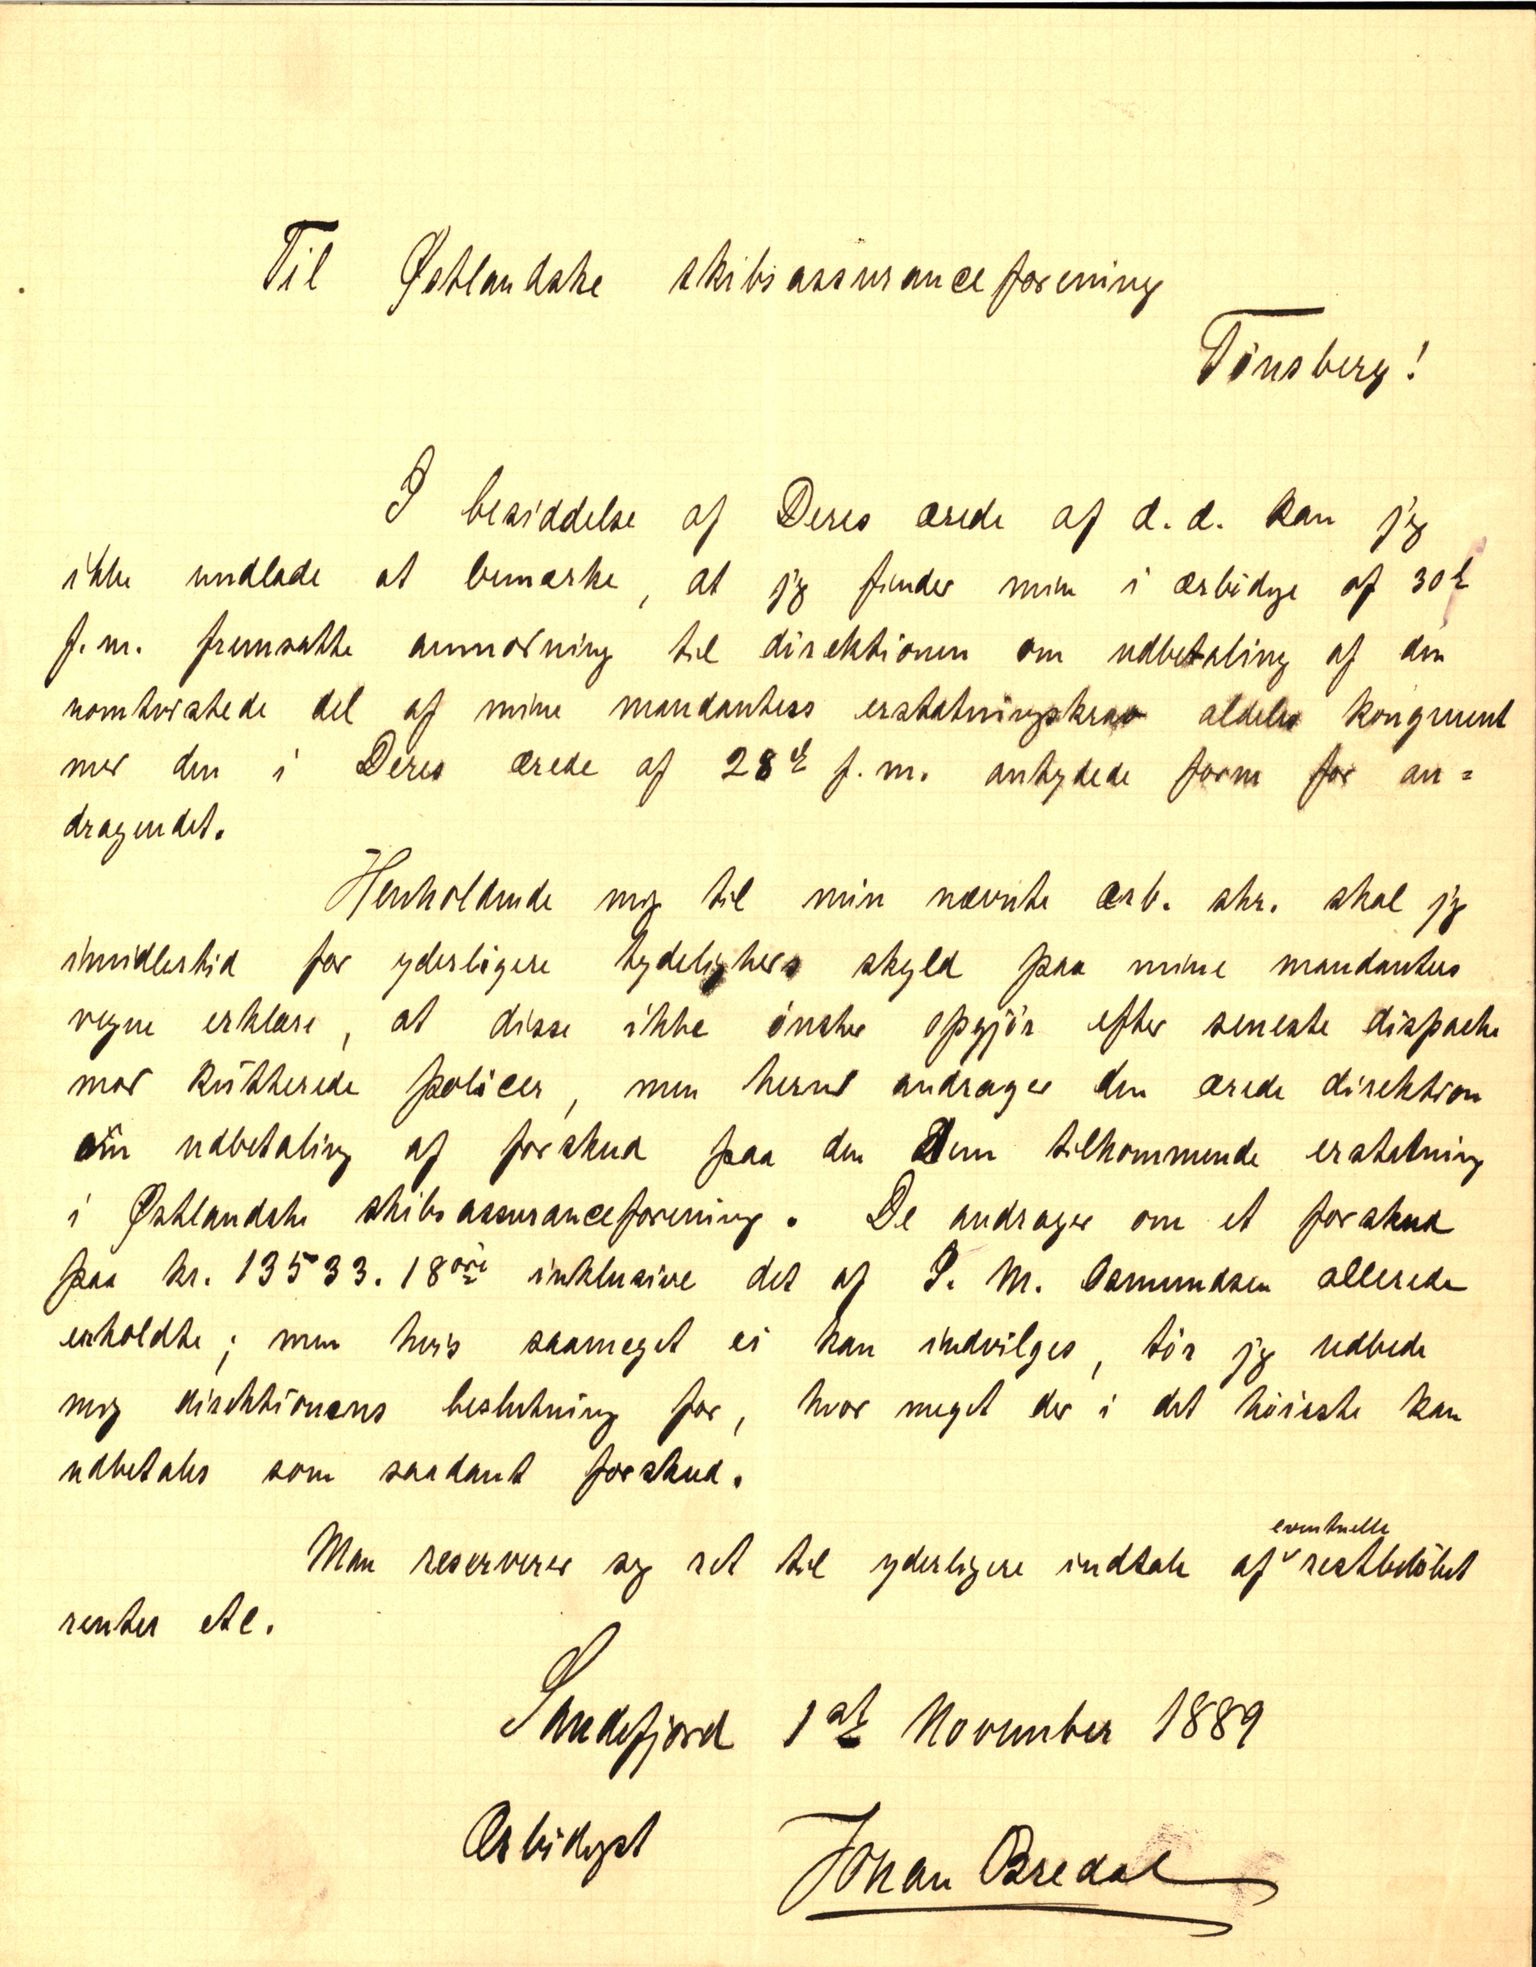 Til Østlandske skibsassuranceforening
Tønsberg!
I besiddelse af Deres ærede af d.d. kan jeg
ikke undlade at bemærke, at jeg finder min i ærbødige af 30te
f.m. fremsatte anmodning til direktionen om udbetaling af den
uomtvistede del af mine mandanters erstatningskrav aldeles kongruent
med den i Deres ærede af 28de f.m. antydede form for an=
dragendet.
Henholdende mig til min nævnte ærb. skr. skal jeg
imidlertid for yderligere tydeligheds skyld paa mine mandanters
vegne erklære, at disse ikke ønsker opgjør efter seneste dispache
mod kvitterede policer, men herved andrager den ærede direktion
om udbetaling af forskud paa den Dem tilkommende erstatning
i Østlandske skibsassuranceforening. De andrager om et forskud
paa kr. 13533.18 øre inklusive det af P. M. Osmundsen allerede
erholdte; men hvis saameget ei kan indvilges, tør jeg udbede
mig direktionens beslutning for, hvor meget der i det høieste kan
udbetales som saadant forskud.
Man reserverer sig ret til yderligere indtale af eventuelle restbeløbet
renter etc.
Sandefjord 1ste November 1889
Ærbødigst Johan Bredal